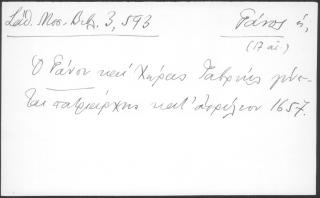 Σάθ. Μεσ. Βιβλ. 3, 593 Γάνος ἡ,
(17 αἰ.)
Ὁ Γάνου καὶ Χώρας Γαβριήλ γίνε-
ται πατριάρχης κατ' Ἀπρίλιον 1657.